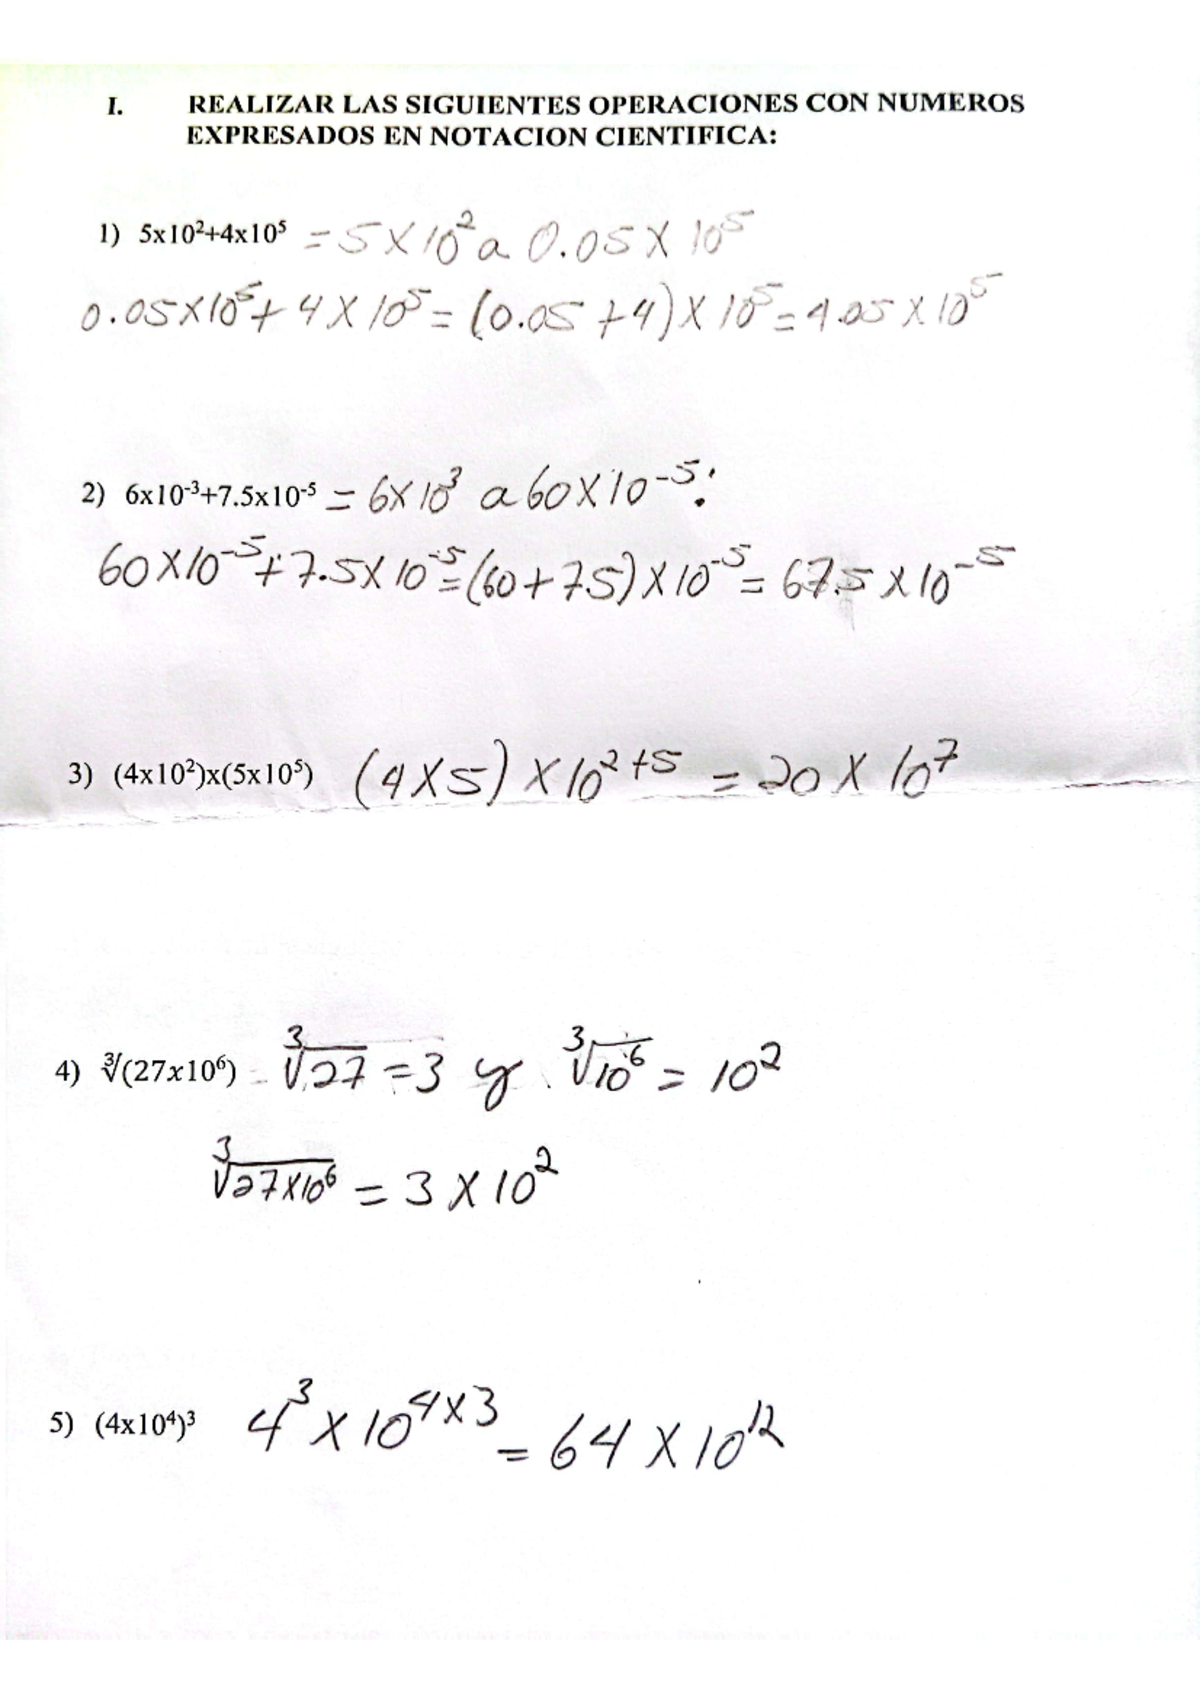 I. REALIZAR LAS SIGUIENTES OPERACIONES CON NUMEROS
EXPRESADOS EN NOTACION CIENTIFICA:
1) 5x10²+4x10⁵ = 5 X 10² a 0.05 X 10⁵
0.05X10⁵ + 4 X 10⁵ = (0.05 + 4) X 10⁵ = 4.05 X 10⁵
2) 6x10⁻³+7.5x10⁻⁵ = 6X10³ a 60X10⁻⁵:
60X10⁻⁵ + 7.5X10⁻⁵ = (60+75) X 10⁻⁵ = 67.5 X 10⁻⁵
3) (4x10²)x(5x10⁵) (4X5) X 10²⁺⁵ = 20 X 10⁷
4) ∛(27x10⁶) ∛27 = 3 y ∛10⁶ = 10²
∛27X10⁶ = 3 X 10²
5) (4x10⁴)³ 4³ X 10⁴ˣ³ = 64 X 10¹²